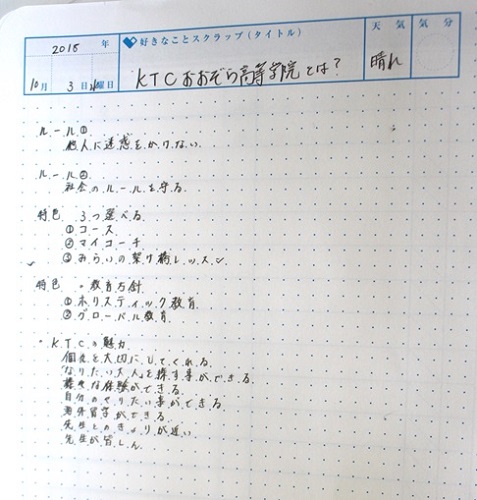 2018 年
10月 3日 水曜日
好きなことスクラップ(タイトル)
KTCおおぞら高等学院とは?
天気
晴れ
気分
ルール①
他人に迷惑をかけない
ルール②
社会のルールを守る
特色 3つ選べる
①コース
②マイコーチ
③みらいの架け橋レッスン
特色・教育方針
①ホリスティック教育
②グローバル教育
・KTCの魅力
個性を大切にしてくれる
「なりたい大人」を探す事ができる
様々な体験ができる
自分のやりたい事ができる
海外留学ができる
先生とのきょりが近い
先生が皆しん